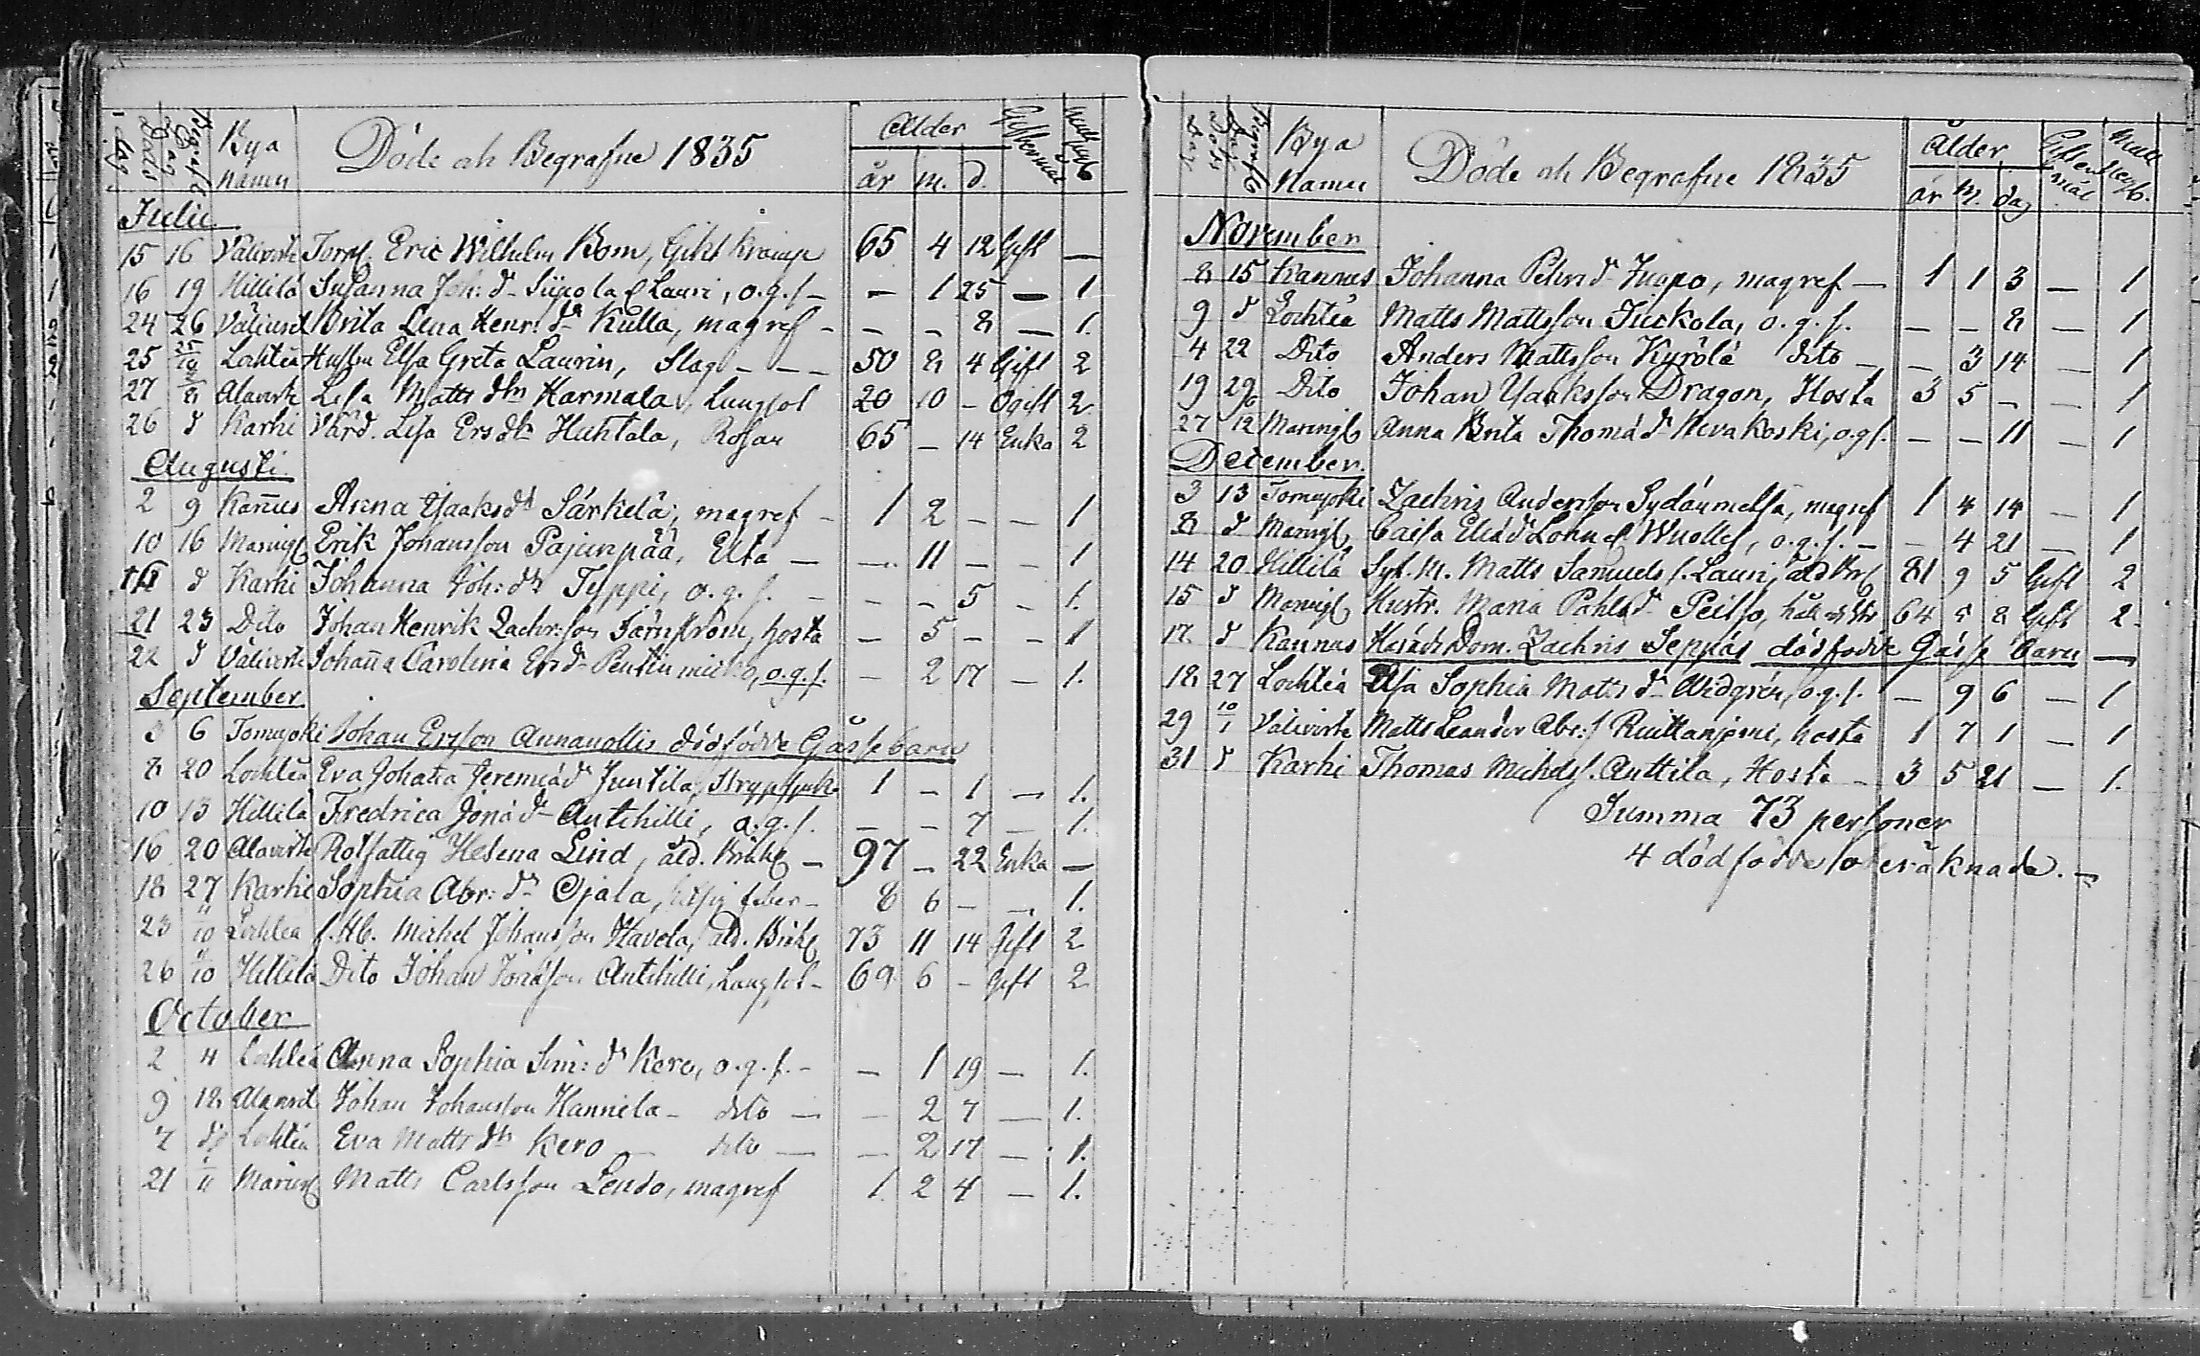 Döds Dag Begrafn. Dag Bya Namn Döde och Begrafne 1835 Ålder år m. d. Giftermål
Julii
15 16 Välivirre Torp. Eric Wilhelm Kom, Gikt Kramp 65 4 12 Gift —
16 19 Hillilä Susanna Joh: dr Siipola Lauri, o.g.s — — 1 25 — 1
24 26 Brita Lena Henr: dr Kulla, magref — — — 8 — 1.
25 Lochteå Hustru Elsa Greta Laurin, Slag — — 50 8 4 Gift 2
27 Alavirre Lisa Matts dr Karmala, Lungsot 20 10 — Ogift 2
26 d Karhi Lisa Ers dr Huhtala, Rosen 65 — 14 Enka 2
Augusti
2 9 Kañus Anna Jaaks dr Särkelä, magref — 1 2 — — 1
10 16 Maringl Erik Johansson Pajunpää, Elta — — 11 — — 1
d Karhi Johanna Joh: dr Teppi, o.g.s. — — — 5 — 1.
21 23 Dito Johan Henrik Zachr:son Törnström, hosta — 5 — — 1
22 d Välivirre Johaña Carolina Ers dr, o.g.s. — 2 17 — 1.
September
3 6 Tomujoki Johan Ersson Annanollis dödfödde Gåsse barn
8 20 Lochteå Eva Johaña Jeremiæ dr Juntila, Strypsjuk. 1 — 1 — 1.
10 13 Hillilä Fredrica Jonæ dr Antihilli, o.g.s. — — 7 — 1.
16 20 Alavirre Rotfattig Helena Lind, åld. Bräckl — 97 — 22 Enka —
18 27 Karhi Sophia Abr: dr Ojala, feber — 8 6 — — 1.
23 Lochteå f. Hb. Michel Johansson Havela, åld. Bräckl 73 11 14 Gift 2
26 Hillilä Dito Johan Jonasson Antihilli, Lungsot — 69 6 — Gift 2
October
2 4 Lochteå Anna Sophia Sim: dr Kero, o.g.s. — — 1 19 — 1.
9 18 Alavirre Johan Johansson Hannila — dito — — 2 7 — 1.
7 Lochteå Eva Matts dr Kero — dito — — 2 17 — 1.
21 Maringl Matts Carlsson Lendo, magref 1. 2 4 — 1.
Döds Dag Begrafn. Bya Namn Döde och Begrafne 1835 Ålder år m. dag Giftermål
November
8 15 Kannus Johanna Petri dr Juopo, magref — 1 1 3 — 1
9 d Lochteå Matts Mattsson Juckola, o.g.s. — — 8 — 1
4 22 Dito Anders Mattsson Kyrölä dito — — 3 14 — 1
19 29 Dito Johan Jaaksson Dragon, Hosta 3 5 — — 1
27 Maringl Anna Brita Thomæ dr Nevakoski, o.g.s. — — 11 — 1
December.
3 13 Tomujoki Zachris Andersson Sydänmetsä, magref 1 4 14 — 1
8 d Maringl Caisa Eliæ dr, o.g.s. — — 4 21 — 1
14 20 Hillilä Matts Samuels s. Lauri, 81 9 5 Gift 2
15 d Maringl Hustr. Maria Påhls dr Peitso, 64 5 8 Gift 2.
17 d Kannus Dom. Zachris Seppäs dödfödde Gåsse barn —
18 27 Lochteå Elsa Sophia Matts dr Widgrén, o.g.s. — 9 6 — 1
29 10/1 Välivirre Matts Leander Abr: s, hosta 1 7 1 — 1
31 d Karhi Thomas Michels s. Anttila, Hosta — 3 5 21 — 1.
Summa 73 personer
4 dödfödde oberäknade. —